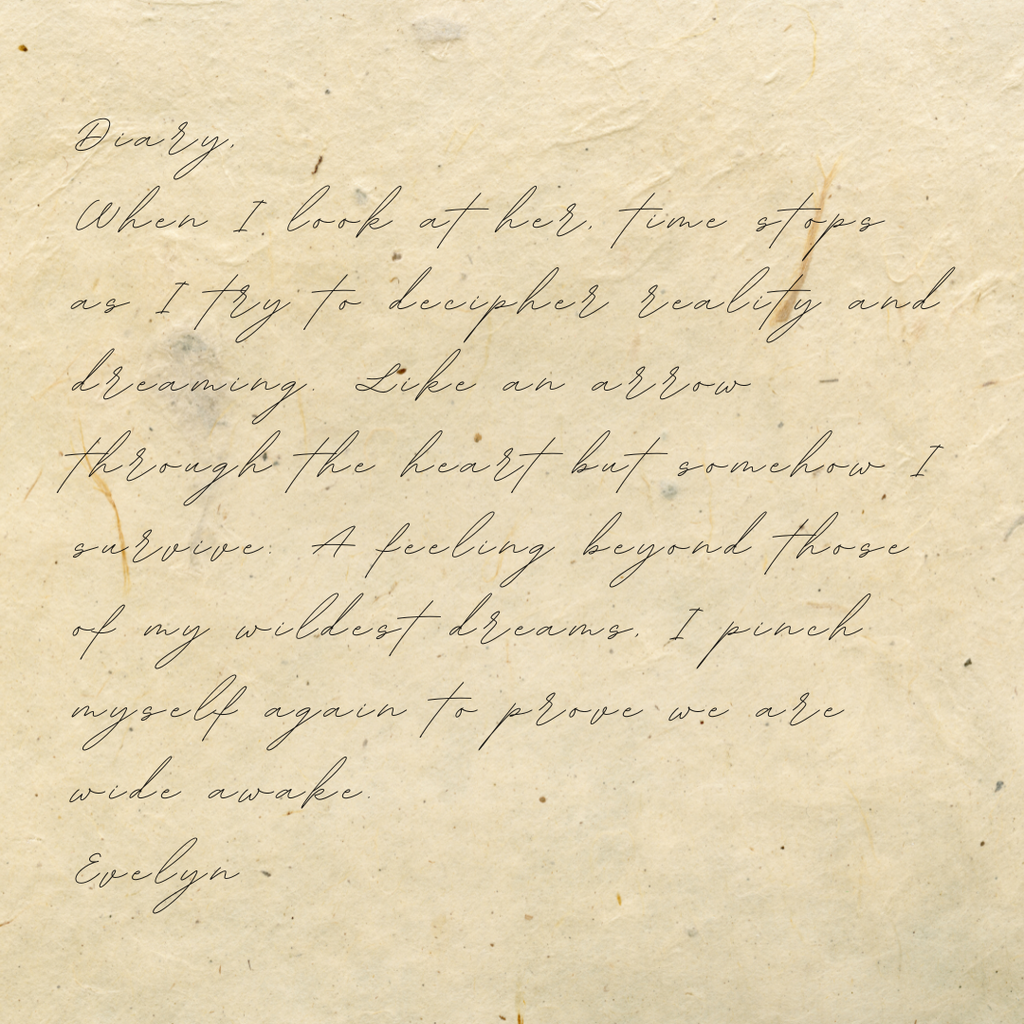 Diary,
When I look at her, time stops
as I try to decipher reality and
dreaming. Like an arrow
through the heart but somehow I
survive. A feeling beyond those
of my wildest dreams, I pinch
myself again to prove we are
wide awake.
Evelyn